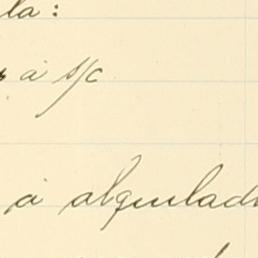 la:
à s/c
à alquilad